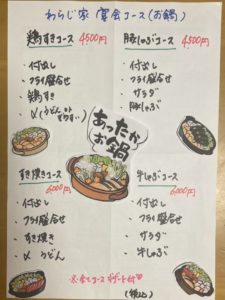 わらじ家 宴会コース(お鍋)
鶏すきコース 4500円
・付出し
・フライ盛合せ
・鶏すき
・〆(うどん or ぞうすい)
豚しゃぶコース 4500円
・付出し
・フライ盛合せ
・サラダ
・豚しゃぶ
あったか
お鍋
すき焼きコース
6000円
・付出し
・フライ盛合せ
・すき焼き
・〆 うどん
牛しゃぶコース
6000円
・付出し
・フライ盛合せ
・サラダ
・牛しゃぶ
※全てコースデザート付
(税込)